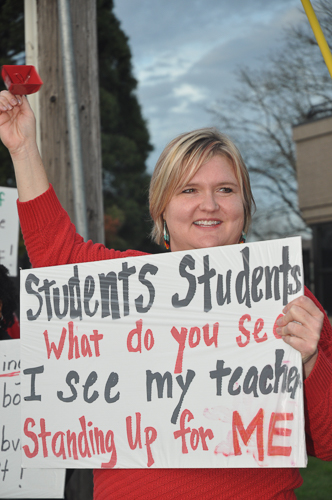 Students Students
What do you se
I see my teacher
Standing Up for ME